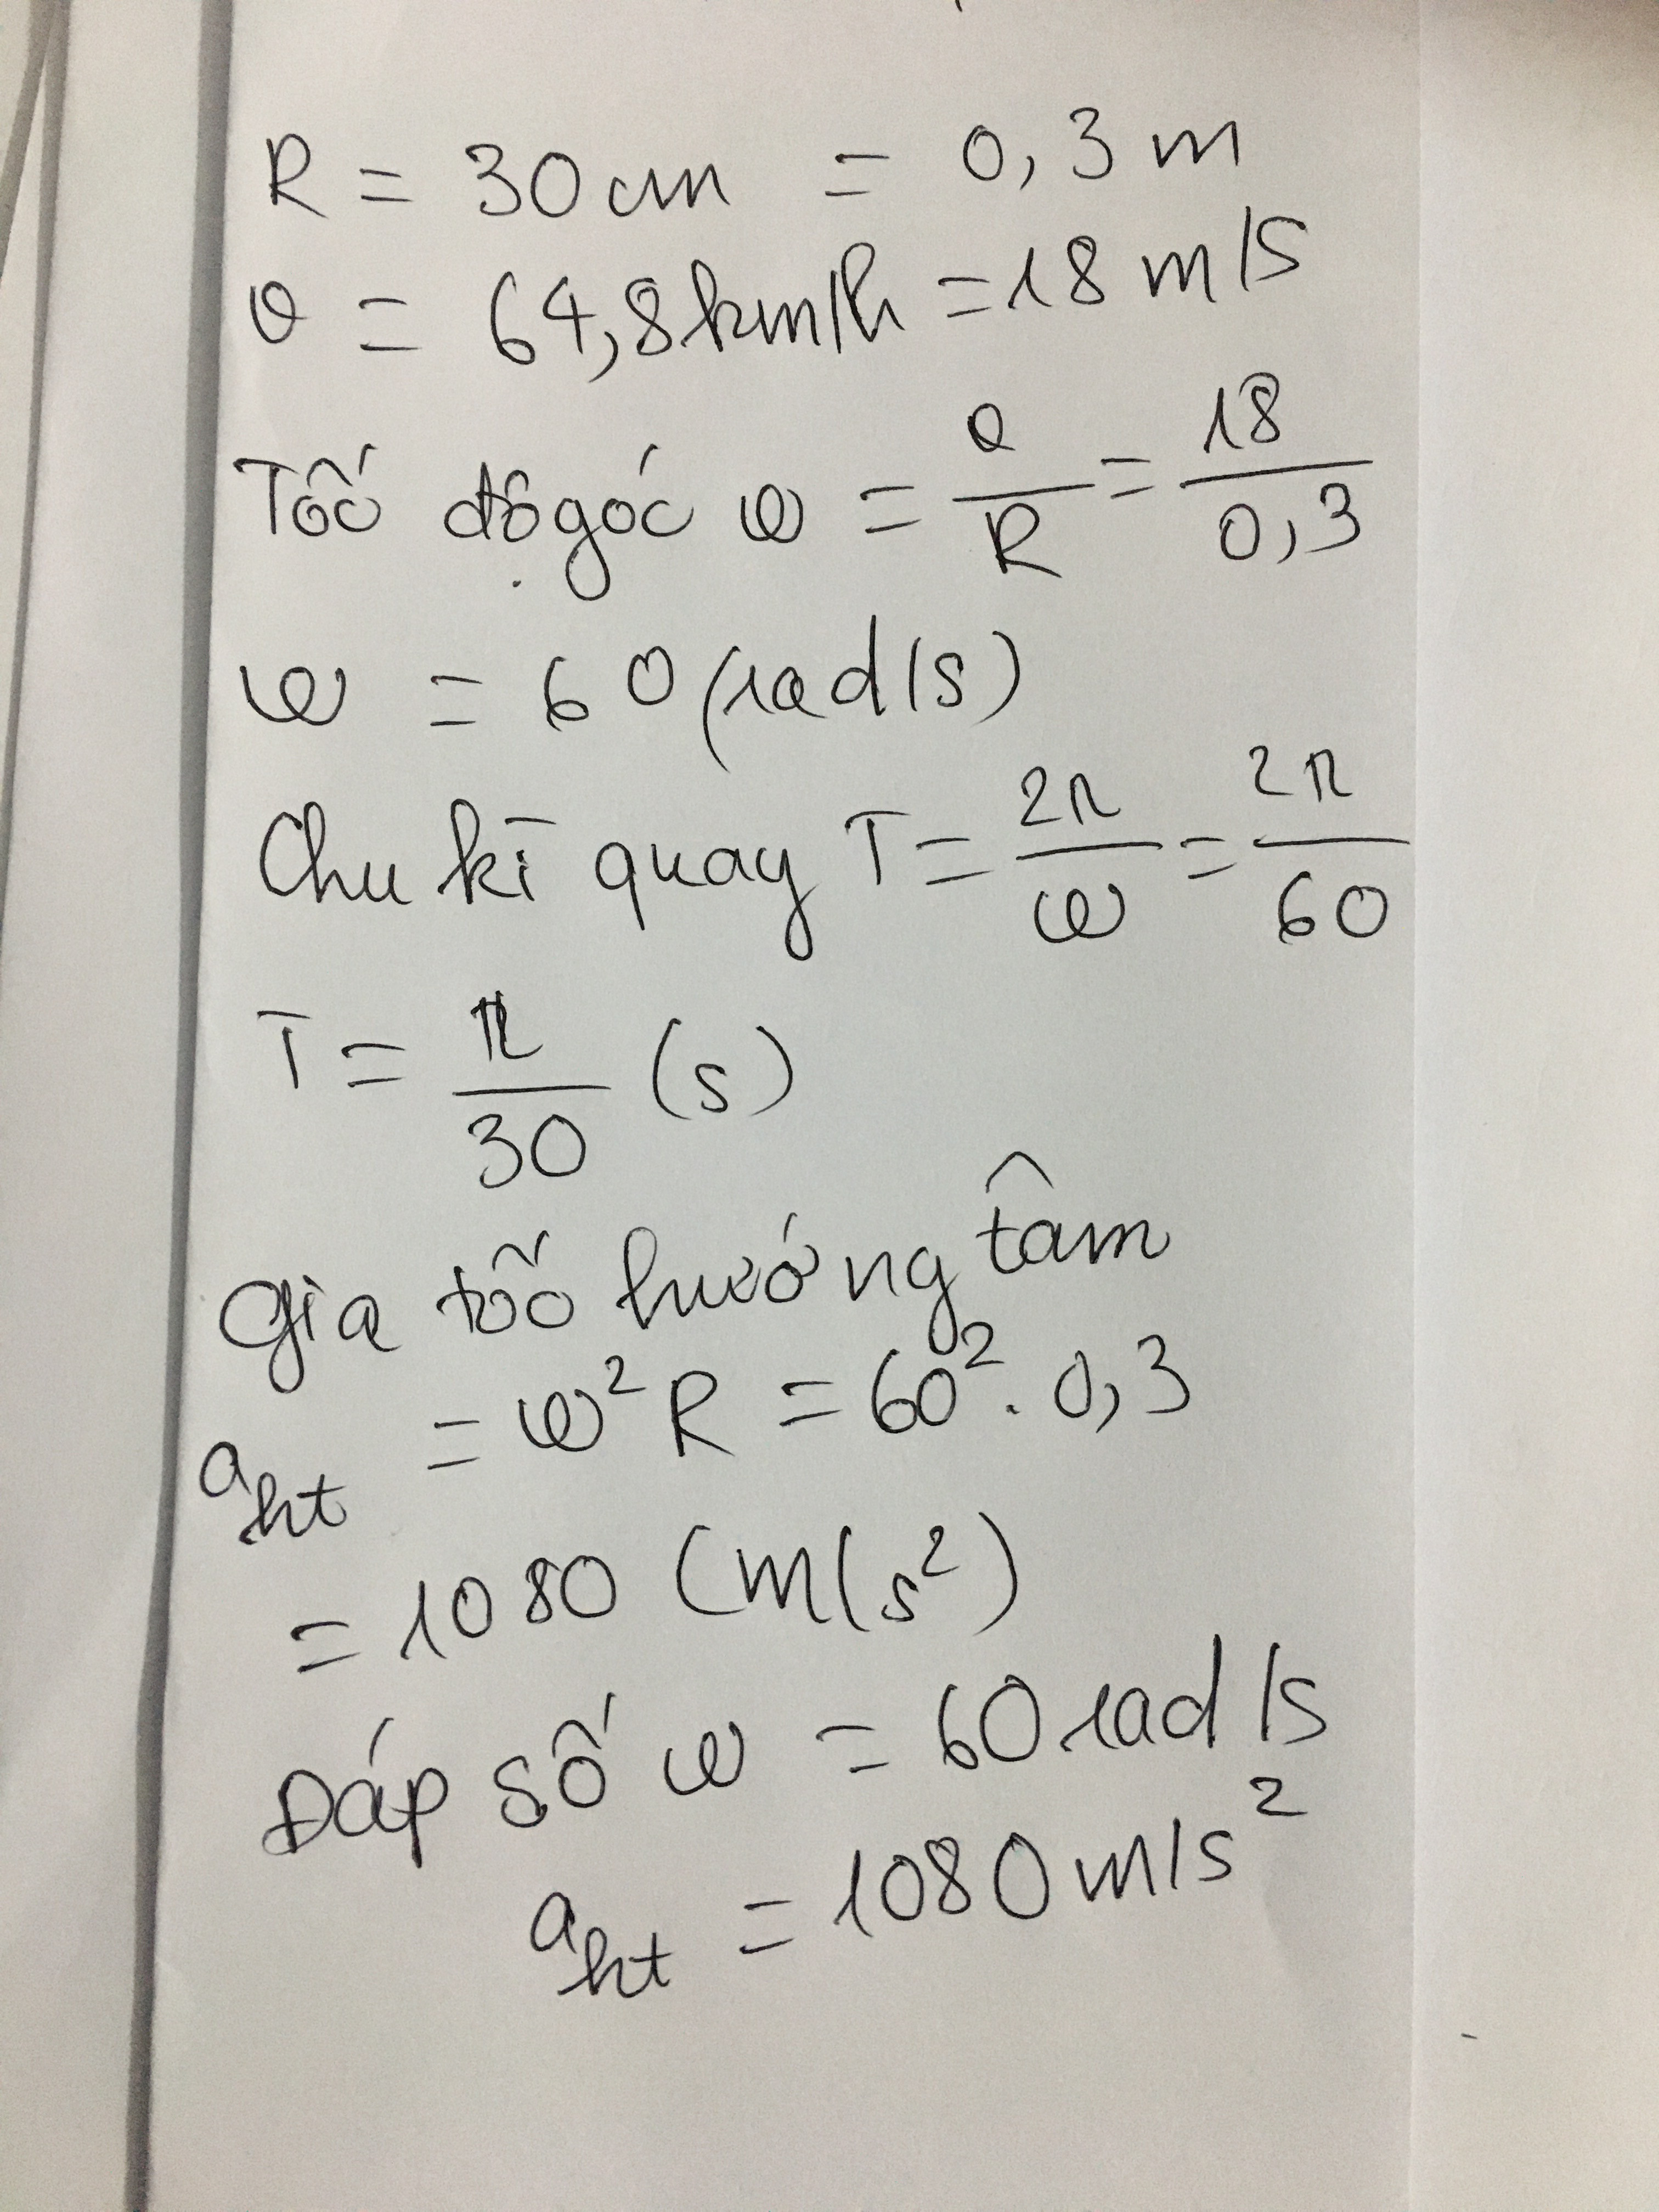 R = 30 cm = 0,3 m
v = 64,8 km/h = 18 m/s
Tốc độ góc ω = v/R = 18/0,3
ω = 60 (rad/s)
Chu kì quay T = 2π/ω = 2π/60
T = π/30 (s)
Gia tốc hướng tâm
aht = ω² R = 60² . 0,3
= 1080 (m/s²)
Đáp số ω = 60 rad/s
aht = 1080 m/s²